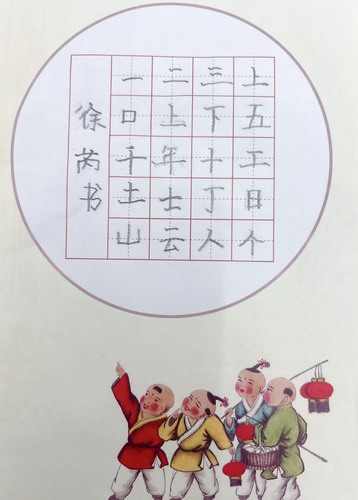 一二三上
口上下五
千年十工
土士丁日
山云人个
徐芮书